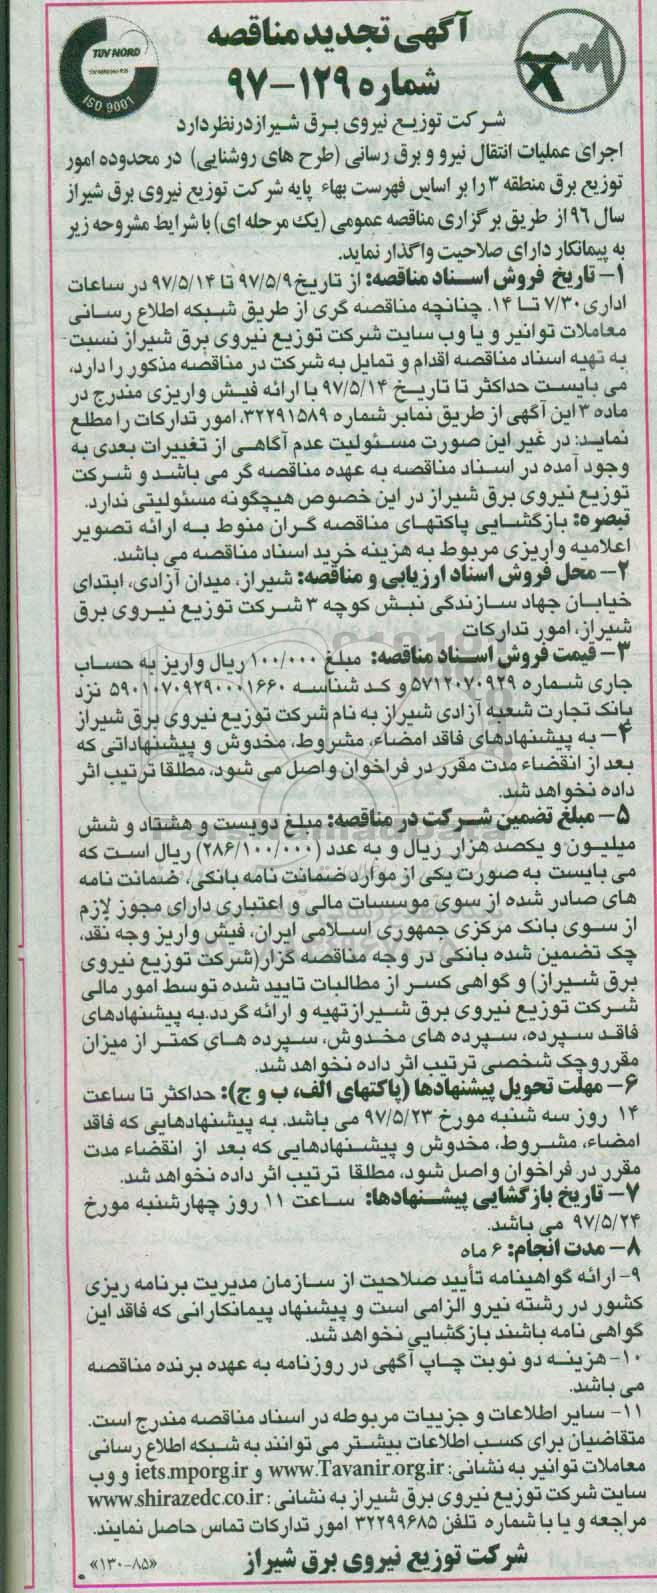 آگهی تجدید مناقصه
شماره ۱۲۹-۹۷
TUV NORD
ISO 9001
شرکت توزیع نیروی برق شیراز درنظر دارد
اجرای عملیات انتقال نیرو و برق رسانی (طرح های روشنایی) در محدوده امور
توزیع برق منطقه ۳ را بر اساس فهرست بهاء پایه شرکت توزیع نیروی برق شیراز
سال ۹۶ از طریق برگزاری مناقصه عمومی (یک مرحله ای) با شرایط مشروحه زیر
به پیمانکار دارای صلاحیت واگذار نماید.
۱- تاریخ فروش اسناد مناقصه: از تاریخ ۹۷/۵/۹ تا ۹۷/۵/۱۴ در ساعات
اداری ۷/۳۰ تا ۱۴. چنانچه مناقصه گری از طریق شبکه اطلاع رسانی
معاملات توانیر و یا وب سایت شرکت توزیع نیروی برق شیراز نسبت
به تهیه اسناد مناقصه اقدام و تمایل به شرکت در مناقصه مذکور را دارد،
می بایست حداکثر تا تاریخ ۹۷/۵/۱۴ با ارائه فیش واریزی مندرج در
ماده ۳ این آگهی از طریق نمابر شماره ۳۲۲۹۱۵۸۹، امور تدارکات را مطلع
نماید: در غیر این صورت مسئولیت عدم آگاهی از تغییرات بعدی به
وجود آمده در اسناد مناقصه به عهده مناقصه گر می باشد و شرکت
توزیع نیروی برق شیراز در این خصوص هیچگونه مسئولیتی ندارد.
تبصره: بازگشایی پاکتهای مناقصه گران منوط به ارائه تصویر
اعلامیه واریزی مربوط به هزینه خرید اسناد مناقصه می باشد.
۲- محل فروش اسناد ارزیابی و مناقصه: شیراز، میدان آزادی، ابتدای
خیابان جهاد سازندگی نبش کوچه ۳ شرکت توزیع نیروی برق
شیراز، امور تدارکات
۳- قیمت فروش اسناد مناقصه: مبلغ ۱۰۰/۰۰۰ ریال واریز به حساب
جاری شماره ۵۷۱۲۰۷۰۹۲۹ و کد شناسه ۵۹۰۱۰۷۰۹۲۹۰۰۰۱۶۶۰ نزد
بانک تجارت شعبه آزادی شیراز به نام شرکت توزیع نیروی برق شیراز
۴- به پیشنهادهای فاقد امضاء، مشروط، مخدوش و پیشنهاداتی که
بعد از انقضاء مدت مقرر در فراخوان واصل می شود، مطلقا ترتیب اثر
داده نخواهد شد.
۵- مبلغ تضمین شرکت در مناقصه: مبلغ دویست و هشتاد و شش
میلیون و یکصد هزار ریال و به عدد (۲۸۶/۱۰۰/۰۰۰) ریال است که
می بایست به صورت یکی از موارد ضمانت نامه بانکی، ضمانت نامه
های صادر شده از سوی موسسات مالی و اعتباری دارای مجوز لازم
از سوی بانک مرکزی جمهوری اسلامی ایران، فیش واریز وجه نقد،
چک تضمین شده بانکی در وجه مناقصه گزار(شرکت توزیع نیروی
برق شیراز) و گواهی کسر از مطالبات تایید شده توسط امور مالی
شرکت توزیع نیروی برق شیراز تهیه و ارائه گردد.به پیشنهادهای
فاقد سپرده، سپرده های مخدوش، سپرده های کمتر از میزان
مقرر و چک شخصی ترتیب اثر داده نخواهد شد.
۶- مهلت تحویل پیشنهادها (پاکتهای الف، ب و ج): حداکثر تا ساعت
۱۴ روز سه شنبه مورخ ۹۷/۵/۲۳ می باشد. به پیشنهادهایی که فاقد
امضاء، مشروط، مخدوش و پیشنهادهایی که بعد از انقضاء مدت
مقرر در فراخوان واصل شود، مطلقا ترتیب اثر داده نخواهد شد.
۷- تاریخ بازگشایی پیشنهادها: ساعت ۱۱ روز چهارشنبه مورخ
۹۷/۵/۲۴ می باشد.
۸- مدت انجام: ۶ ماه
۹- ارائه گواهینامه تأیید صلاحیت از سازمان مدیریت برنامه ریزی
کشور در رشته نیرو الزامی است و پیشنهاد پیمانکارانی که فاقد این
گواهی نامه باشند بازگشایی نخواهد شد.
۱۰- هزینه دو نوبت چاپ آگهی در روزنامه به عهده برنده مناقصه
می باشد.
۱۱- سایر اطلاعات و جزییات مربوطه در اسناد مناقصه مندرج است.
متقاضیان برای کسب اطلاعات بیشتر می توانند به شبکه اطلاع رسانی
معاملات توانیر به نشانی: www.Tavanir.org.ir و iets.mporg.ir و وب
سایت شرکت توزیع نیروی برق شیراز به نشانی: www.shirazedc.co.ir
مراجعه و یا با شماره تلفن ۳۲۲۹۹۶۸۵ امور تدارکات تماس حاصل نمایند.
شرکت توزیع نیروی برق شیراز
«۱۳۰-۸۵»